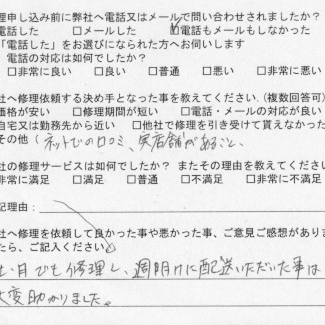 理申し込み前に弊社へ電話又はメールで問い合わせされましたか?
電話した □メールした □電話もメールもしなかった
「電話した」をお選びになられた方へお伺いします
電話の対応は如何でしたか?
□非常に良い □良い □普通 □悪い □非常に悪い
社へ修理依頼する決め手となった事を教えてください。(複数回答可)
価格が安い □修理期間が短い □電話・メールの対応が良い
自宅又は勤務先から近い □他社で修理を引き受けて貰えなかった
その他(ネットでの口コミ、実店舗があること、
社の修理サービスは如何でしたか? またその理由を教えてください
非常に満足 □満足 □普通 □不満足 □非常に不満足
記理由:
社へ修理を依頼して良かった事や悪かった事、ご意見ご感想がありま
たら、ご記入ください
土・日でも修理し、週明けに配送いただいた事は
大変助かりました。